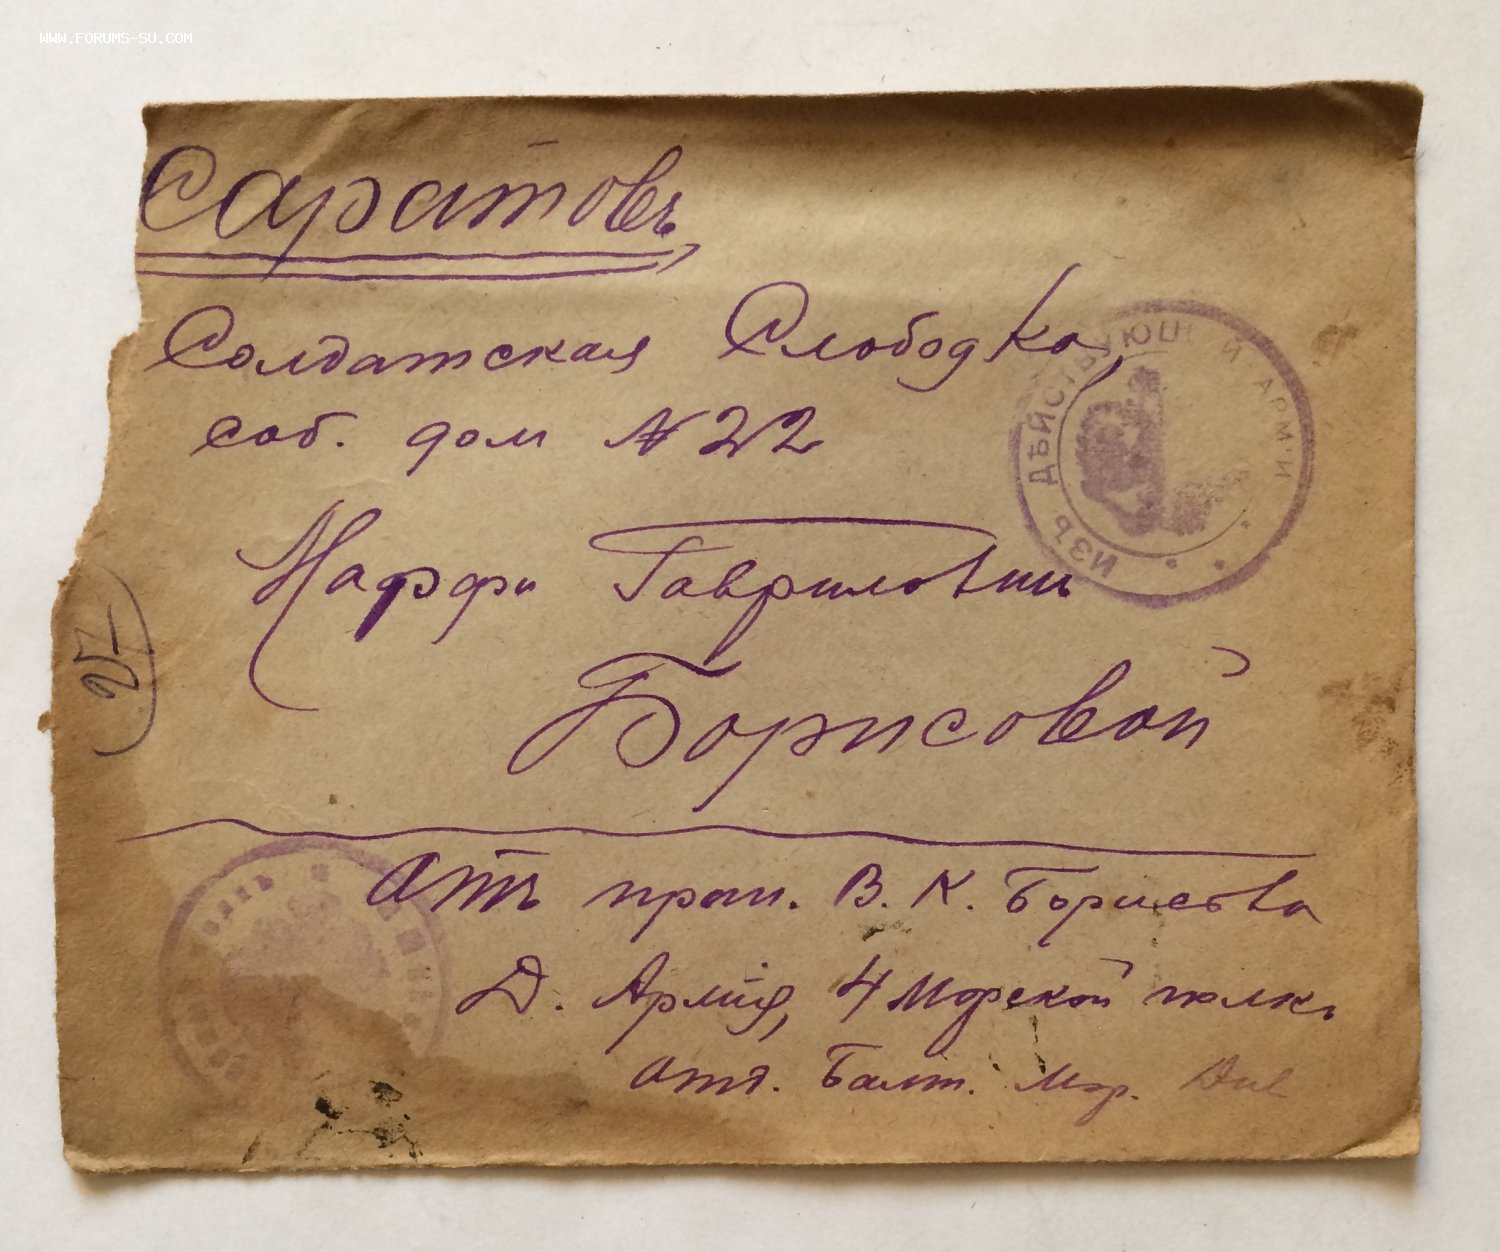 WWW.FORUMS-SU.COM
Саратовъ,
Солдатская Слободка,
соб. дом № 22
ИЗЪ ДѢЙСТВУЮЩЕЙ АРМІИ
Гавриловни
Борисовой
27
отъ прап. В. К. Борисова
Д. Армія, 4 Морской полкъ
отд. Балт. Мор. Див